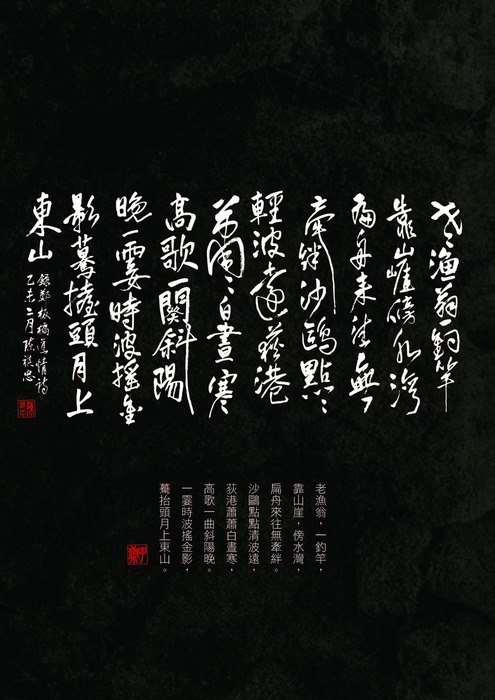 老漁翁一釣竿
靠山崖傍水灣
扁舟来往無
牽絆沙鷗點點
輕波遠荻港
蕭蕭白晝寒
高歌一闋斜陽
晚一霎時波搖金
影驀擡頭月上
東山
錄鄭板橋道情詩
乙未二月陳
老漁翁，一釣竿，
靠山崖，傍水灣，
扁舟來往無牽絆。
沙鷗點點清波遠，
荻港蕭蕭白晝寒，
高歌一曲斜陽晚。
一霎時波搖金影，
驀抬頭月上東山。